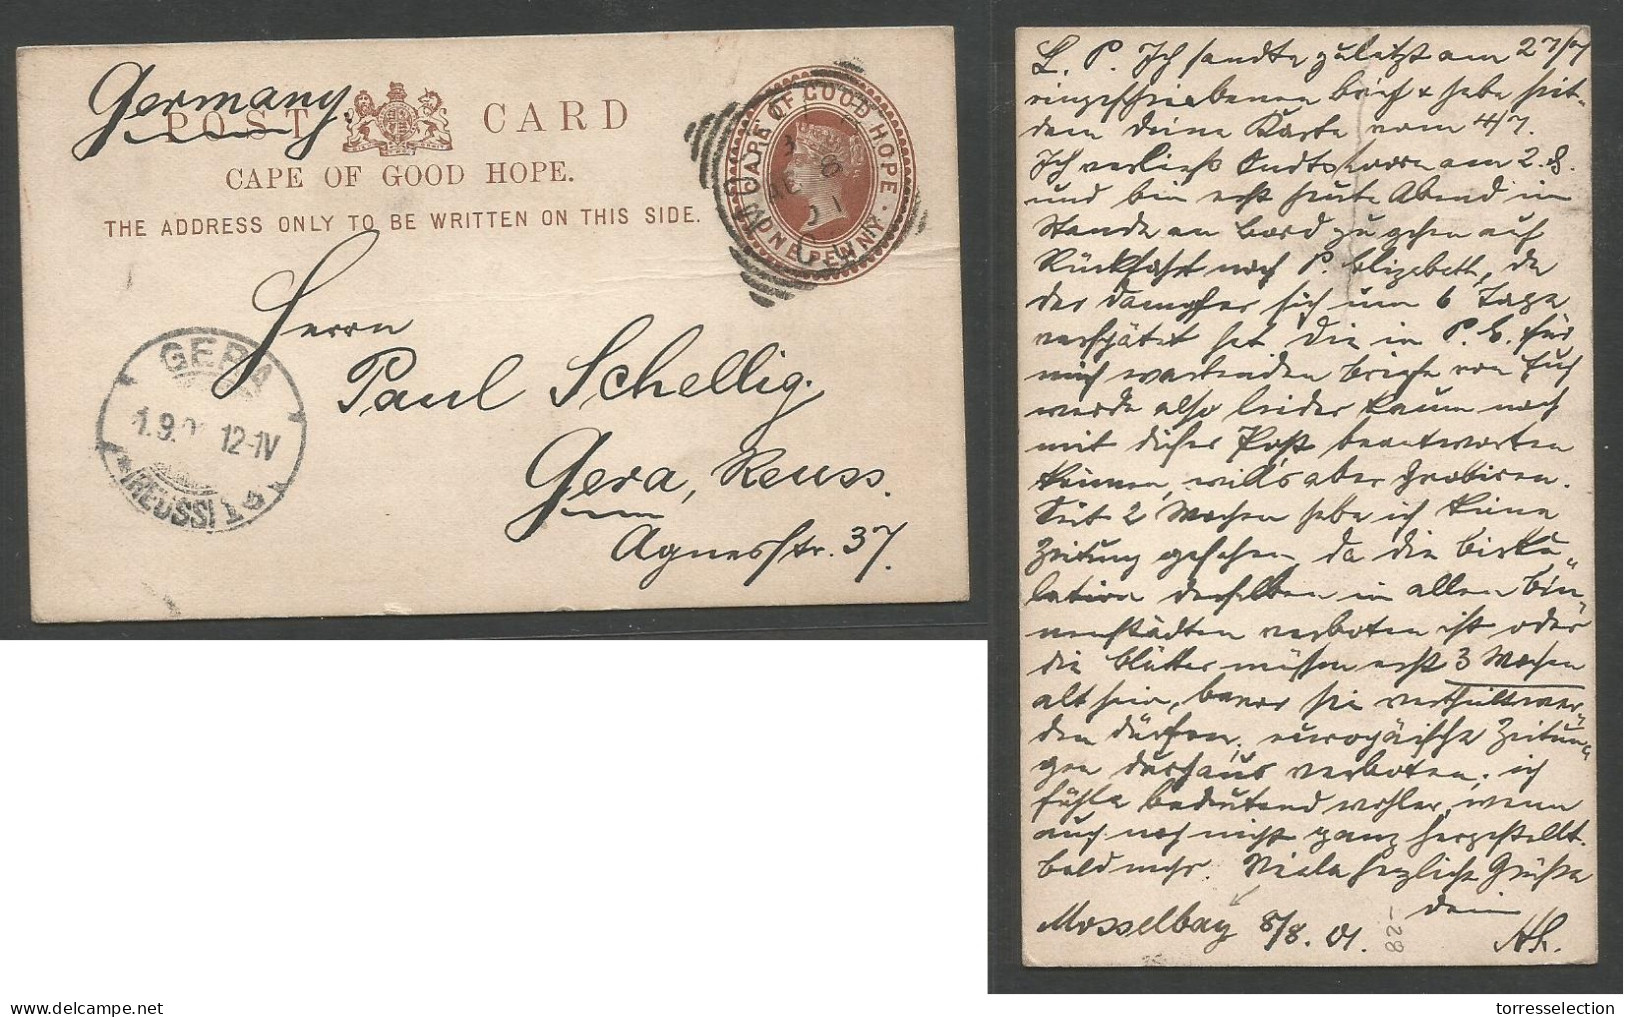 Germany.
POST CARD
CAPE OF GOOD HOPE.
THE ADDRESS ONLY TO BE WRITTEN ON THIS SIDE.
CAPE OF GOOD HOPE
ONE PENNY
8
01
Herrn
Paul Schellig.
Gera, Reuss.
Agnesstr. 37.
GERA
1.9. 12-IV
(REUSS)
L. P. Ich sandte zuletzt am 27/7
eingeschriebenen Brief & habe seit-
dem deine Karte vom 4/7.
Ich verließ Oudtshoorn am 2.8.
und bin erst heute Abend im
Stande an Bord zu gehen auf
Rückfahrt nach P. Elizabeth, da
der Dampfer sich um 6 Tage
verspätet hat die in P. E. für
mich wartenden Briefe von Euch
werde also leider kaum noch
mit dieser Post beantworten
können, will's aber probiren.
Seit 2 Wochen habe ich keine
Zeitung gesehen, da die Cirku-
lation derselben in allen Bin-
nenstädten verboten ist oder
die Blätter müssen erst 3 Wochen
alt sein, bevor sie vertheilt wer-
den dürfen; europäische Zeitun-
gen durchaus verboten; ich
fühle bedeutend wohler, wenn
auch noch nicht ganz hergestellt.
Bald mehr. Viele herzliche Grüße
dein
Mosselbay 8/8. 01.
-28
torresselection